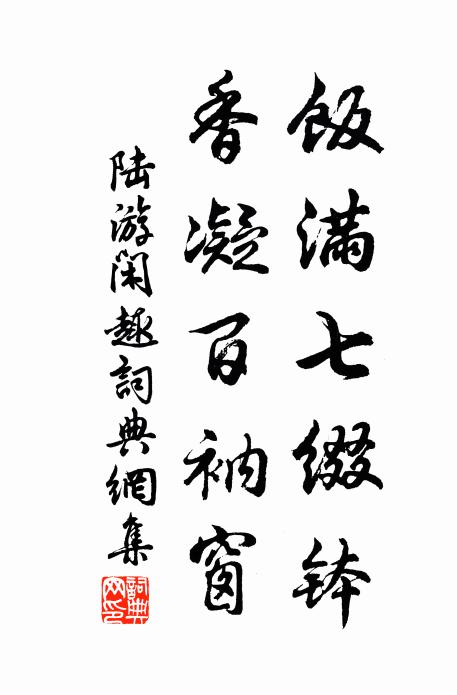 飯滿七綴鉢
香凝百衲窗
陸游閑趣詞典網集
詞典网印